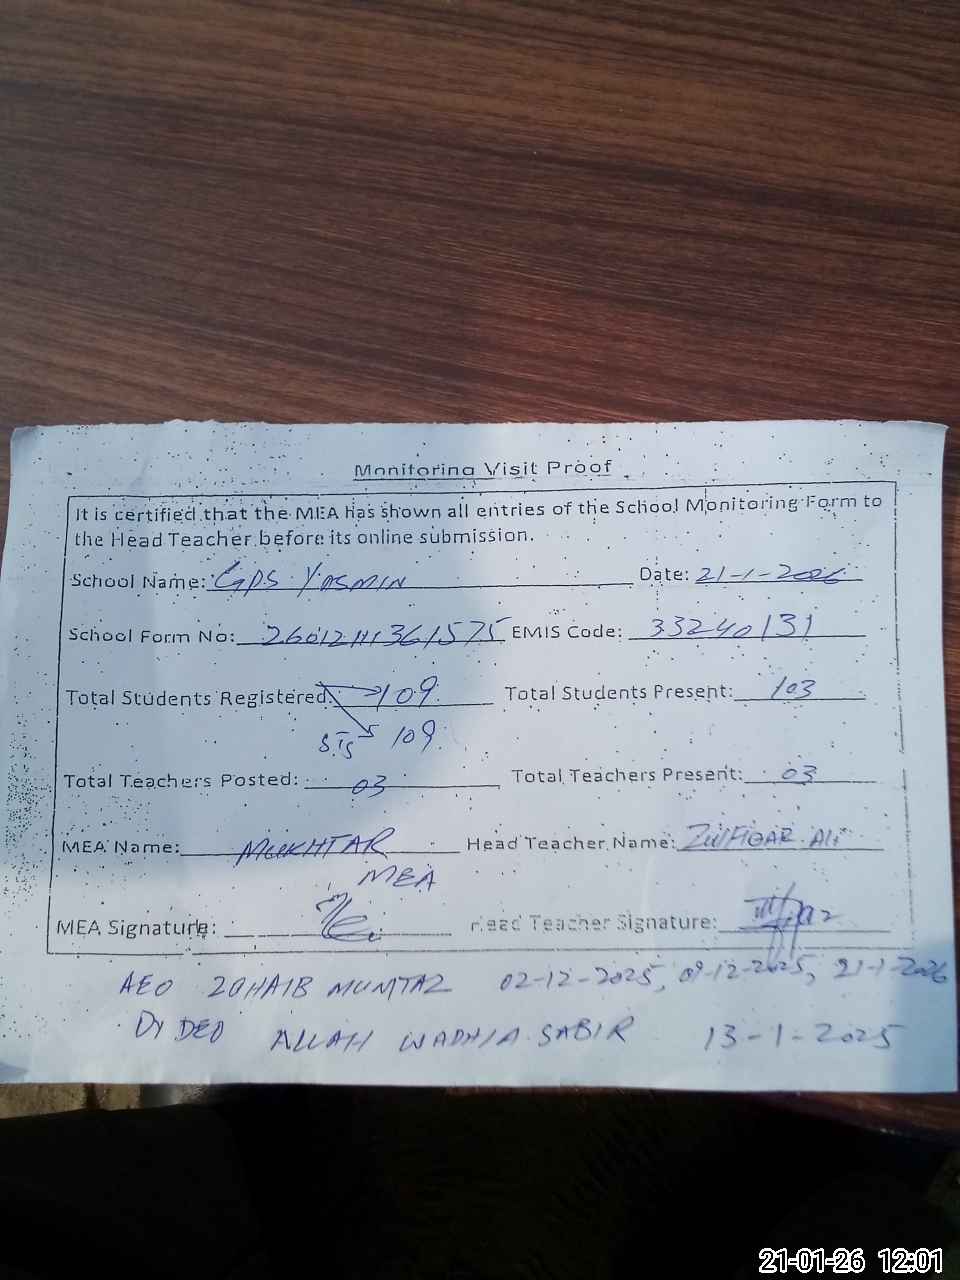 Monitoring Visit Proof
It is certified that the MEA has shown all entries of the School Monitoring Form to
the Head Teacher before its online submission.
School Name: GPS YASMIN Date: 21-1-2026
School Form No: EMIS Code: 33240131
Total Students Registered: 109 Total Students Present: 103
STS 109
Total Teachers Posted: 03 Total Teachers Present: 03
MEA Name: MUKHTAR Head Teacher Name: ZULFIQAR Ali
MEA
MEA Signature: Head Teacher Signature:
AEO ZOHAIB MUMTAZ 02-12-2025, 09-12-2025, 21-1-2026
Dy DEO ALLAH WADHIA SABIR 13-1-2025
21-01-26 12:01